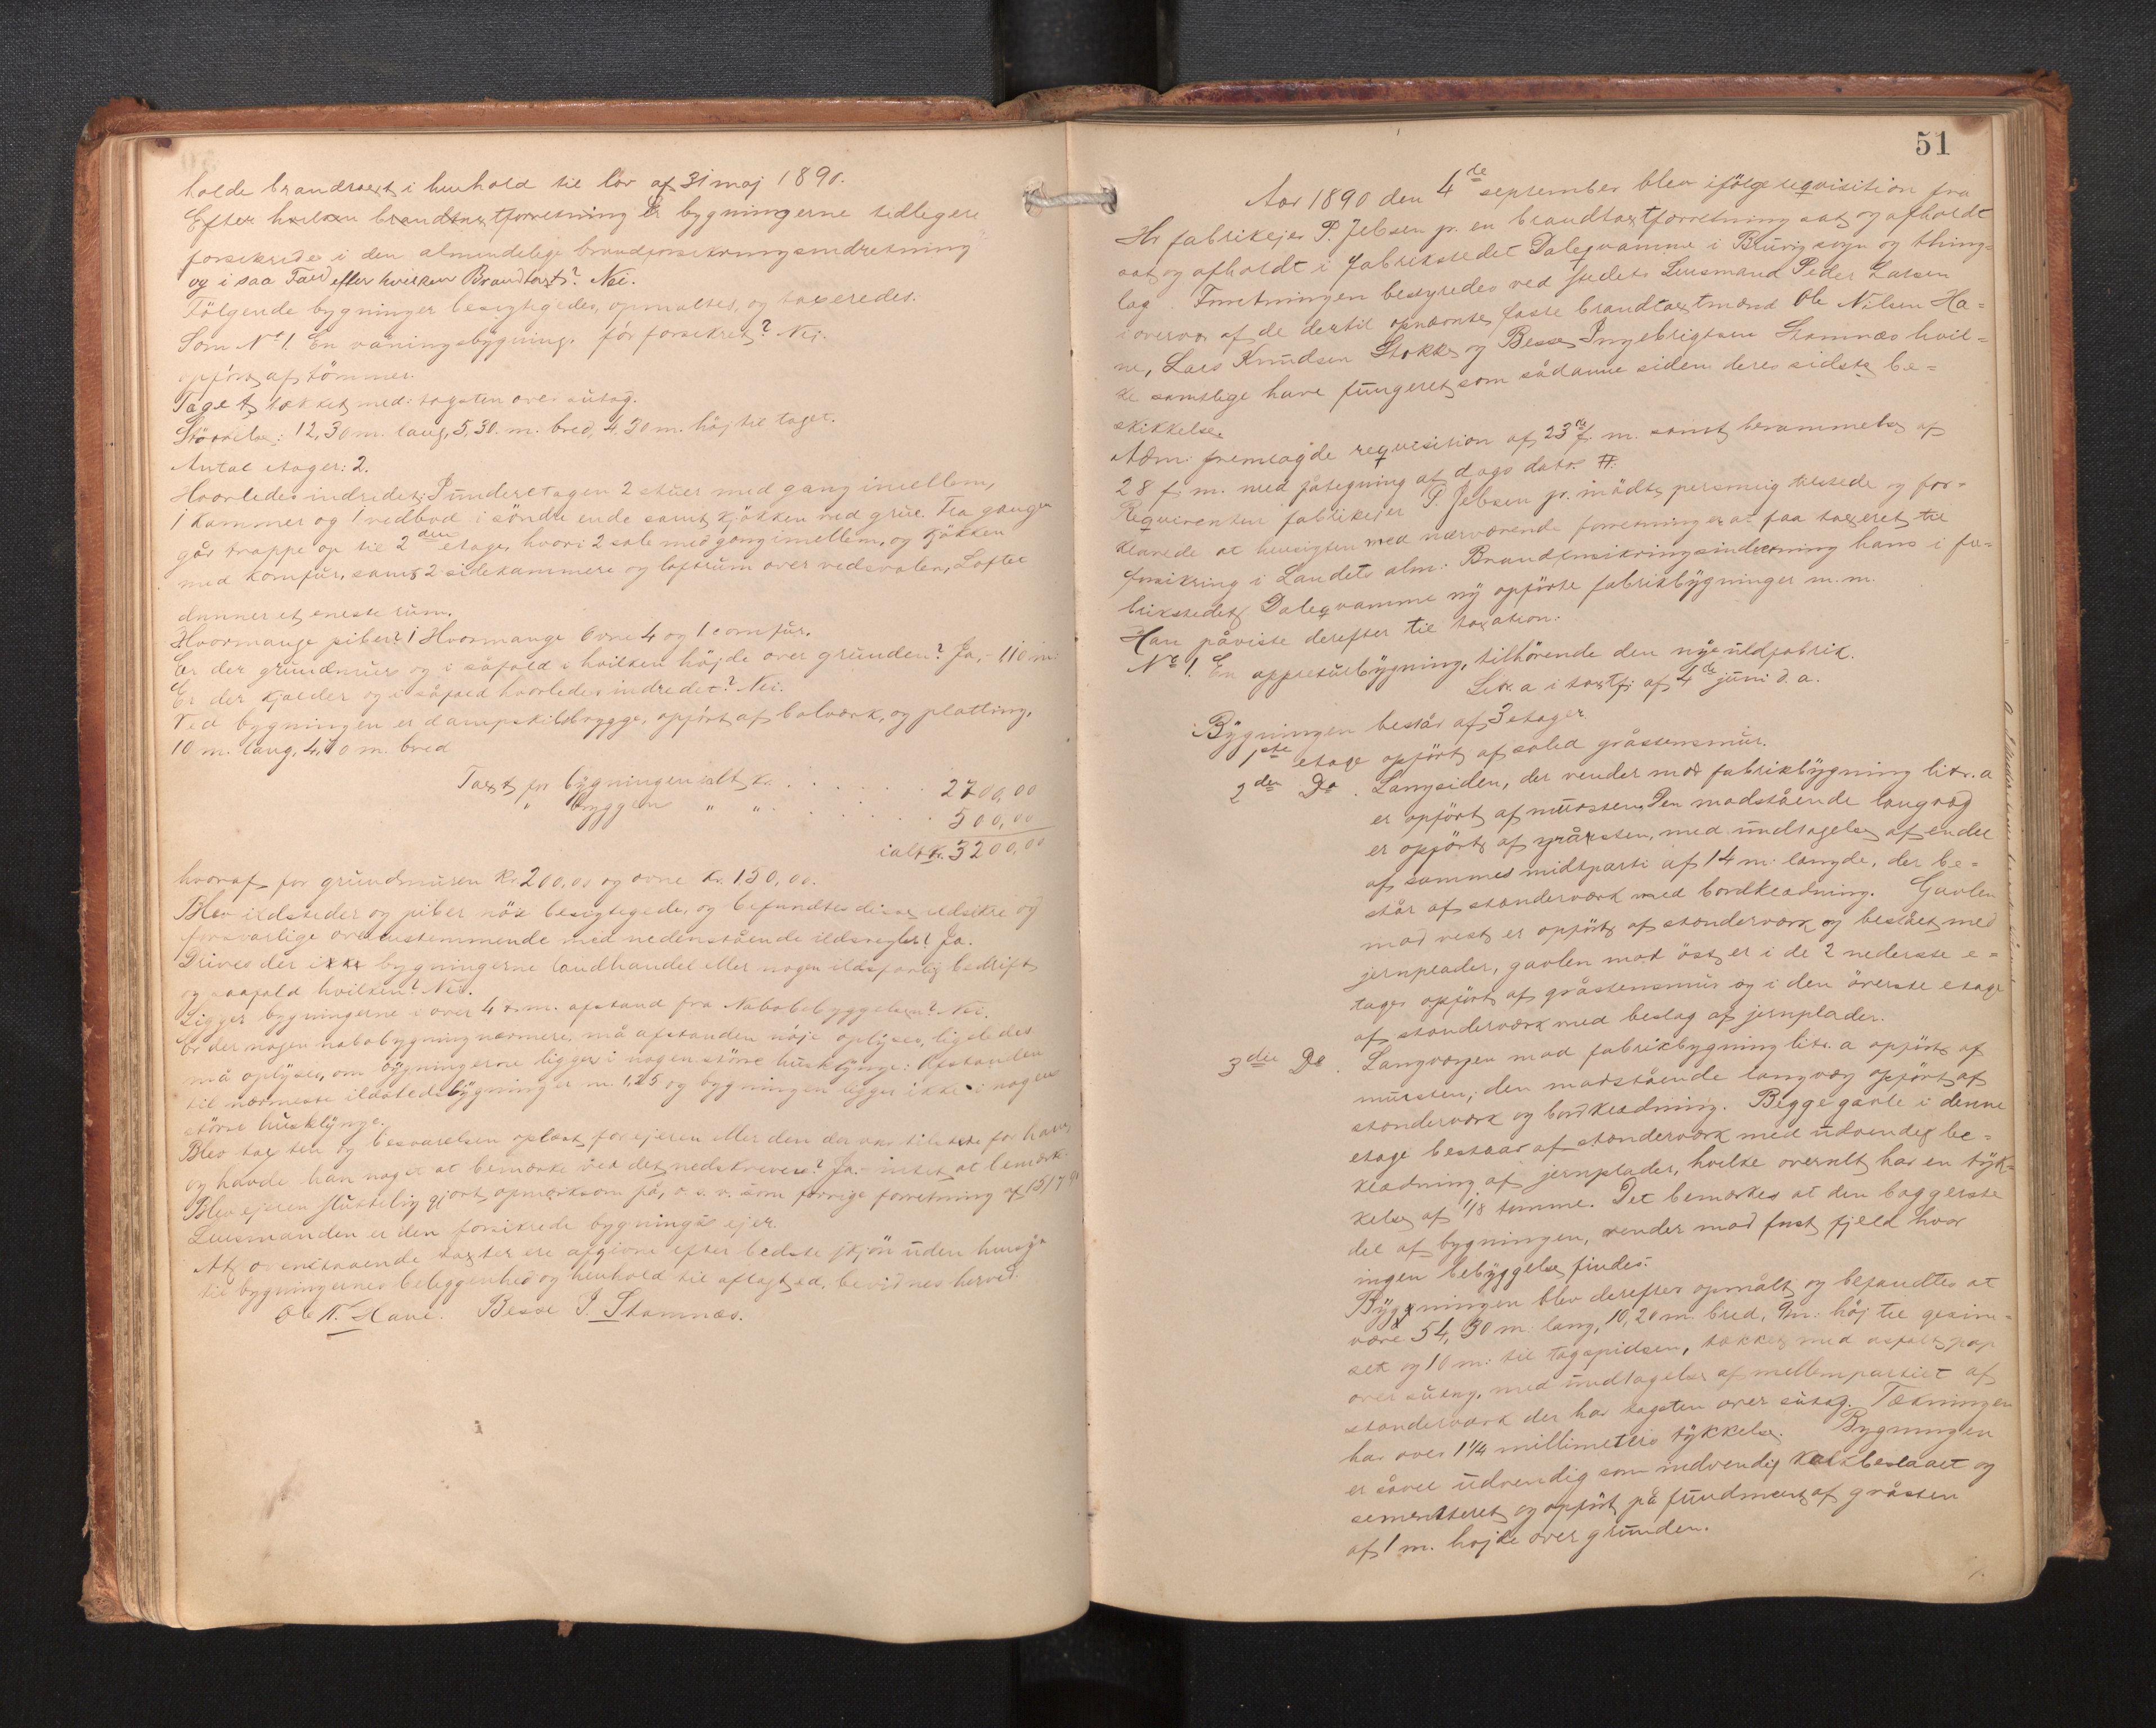 holde brandtaxt i henhold til lov af 31 maj 1890.
Efter hvilken brandtaxtforretning Er bygningerne tidligere
forsikrede i den almindelige brandforsikringsindretning
og i saa Fald efter hvilken Brandtaxt? Nei.
Følgende bygninger besigtigedes, opmaaltes, og taxeredes.
Som No 1. En våningsbygning. før forsikret? Nei.
opført af tømmer.
Taget tækket med: tagsten over sutag.
Størrelse: 12,30 m. lang, 5,30. m. bred, 4.30 m. høj til taget.
Antal etager: 2.
Hvorledes indredet: I underetagen 2 stuer med gang imellem,
1 kammer og 1 vedbod i søndre ende samt kjøkken med grue. Fra gangen
går trappe op til 2den etage, hvori 2 sale med gang imellem, og kjøkken
med komfur, samt 2 sidekammere og loftrum over vedsvalen, Loftet
danner et eneste rum.
Hvormange piber? 1 Hvormange Ovne 4 og 1 comfur.
Er der grundmur og i såfald i hvilken højde over grunden? Ja, - 110 m.
Er der kjælder og i såfald hvorledes indredet? Nei.
Ved bygningen er dampskibsbrygge, opført af bolværk, og platting,
10 m. lang, 4,70 m. bred
Taxt for bygningen ialt kr. . . . . . 2700,00
" bryggen " " . . . . . 500,00
ialt kr. 3200,00
hvoraf for grundmuren kr. 200,00 og ovne kr. 150,00.
Blev ildsteder og piber nøie besigtigede, og befandtes disse ildsikre og
forsvarlige overensstemmende med nedenstående ildsregler? Ja.
Drives der i bygningerne landhandel eller nogen ildsfarlig bedrift
og saafald hvilken? Nei.
Ligger bygningerne i over 4 m. afstand fra Nabobebyggelsen? Nei.
Er der nogen nabobygning nærmere, må afstanden nøje oplyses, ligeledes
må oplyses, om bygningerne ligger i nogen større husklynge: Afstanden
til nærmeste ildstedsbygning er m. 1,25 og bygningen ligger ikke i nogen
større husklynge.
Blev taxten og besvarelsen oplæst for ejeren eller den der var tilstede for ham,
og havde han noget at bemærke ved det nedskrevne? Ja, - intet at bemærk.
Blev ejeren sluttelig gjort opmærksom på, o. s. v. som forrige forretning af 15/7 90
Lensmanden er den forsikrede bygnings ejer.
At ovenstaaende taxter ere afgivne efter bedste skjøn uden hensyn
til bygningernes beliggenhed og henhold til aflagt ed, bevidnes herved.
Ole N. Hane. Besse I. Stamnæs.
51
Aar 1890 den 4de september blev ifølge requisition fra
Hr fabrikejer P. Jebsen jr. en brandtaxtforretning sat og afholdt
sat og afholdt i fabrikstedet Daleqvamme i Bruvig sogn og thing-
lag. Forretningen bestyredes ved stedets Lensmand Peder Larsen
i overvær af de dertil opnævnte faste brandtaxtmænd Ole Nilsen Ha-
ne, Lars Knudsen Stokke og Besse Ingebrigtsen Stamnæs hvil-
ke samtlige have fungeret som sådanne siden deres sidste be-
skikkelse.
Adm: fremlagde requisition af 23de f. m. samt berammelse af
28 f. m. med påtegning af dags dato.
Requirenten fabrikejer P. Jebsen jr. mødte personlig tilstede og for-
klarede at hensigten med nærværende forretning er at faa taxeret til
forsikring i Landets alm: Brandforsikringsindretning hans i fa-
brikstedet Daleqvamme ny opførte fabrikbygninger m. m.
Han påviste derefter til taxation:
No 1. En appreturbygning, tilhørende den nye uldfabrik.
Litr. a i taxtf: af 4de juni d. a.
Bygningen består af 3 etager.
1ste etage opført af solid gråstensmur.
2den Do . Langsiden, der vender mod fabrikbygning litr. a
er opført af mursten. Den modstående langvæg
er opført af gråsten, med undtagelse af endel
af sammes midtparti af 14 m: længde, der be-
står af standerværk med bordklædning. Gavlen
mod vest er opført af standerværk og beslået med
jernplader, gavlen mod øst er i de 2 nederste e-
tager opført af gråstensmur og i den øverste etage
af standerværk med beslag af jernplader.
3die Do . Langvæggen mod fabrikbygning litr. a opført af
mursten; den modstående langvæg opført af
standerværk og bordklædning. Begge gavle i denne
etage bestaar af standerværk med udvendig be-
klædning af jernplader, hvilke overalt har en tyk-
kelse af 1/8 tomme. Det bemærkes at den baggerste
del af bygningen, vender mod fast fjeld hvor
ingen bebyggelse findes.
Bygningen blev derefter opmålt og befandtes at
være 54,30 m: lang, 10,20 m. bred, 9 m: høj til gesim-
set og 10 m: til tagspidsen, tækket med asfaltpap
over sutag, med undtagelse af mellempartiet af
standerværk der har tagsten over sutag. Tækningen
har over 1 1/4 millimeters tykkelse. Bygningen
er såvel udvendig som indvendig kalkbeslaaet og
sementeret og opført på fundament af gråsten
af 1 m. højde over grunden.